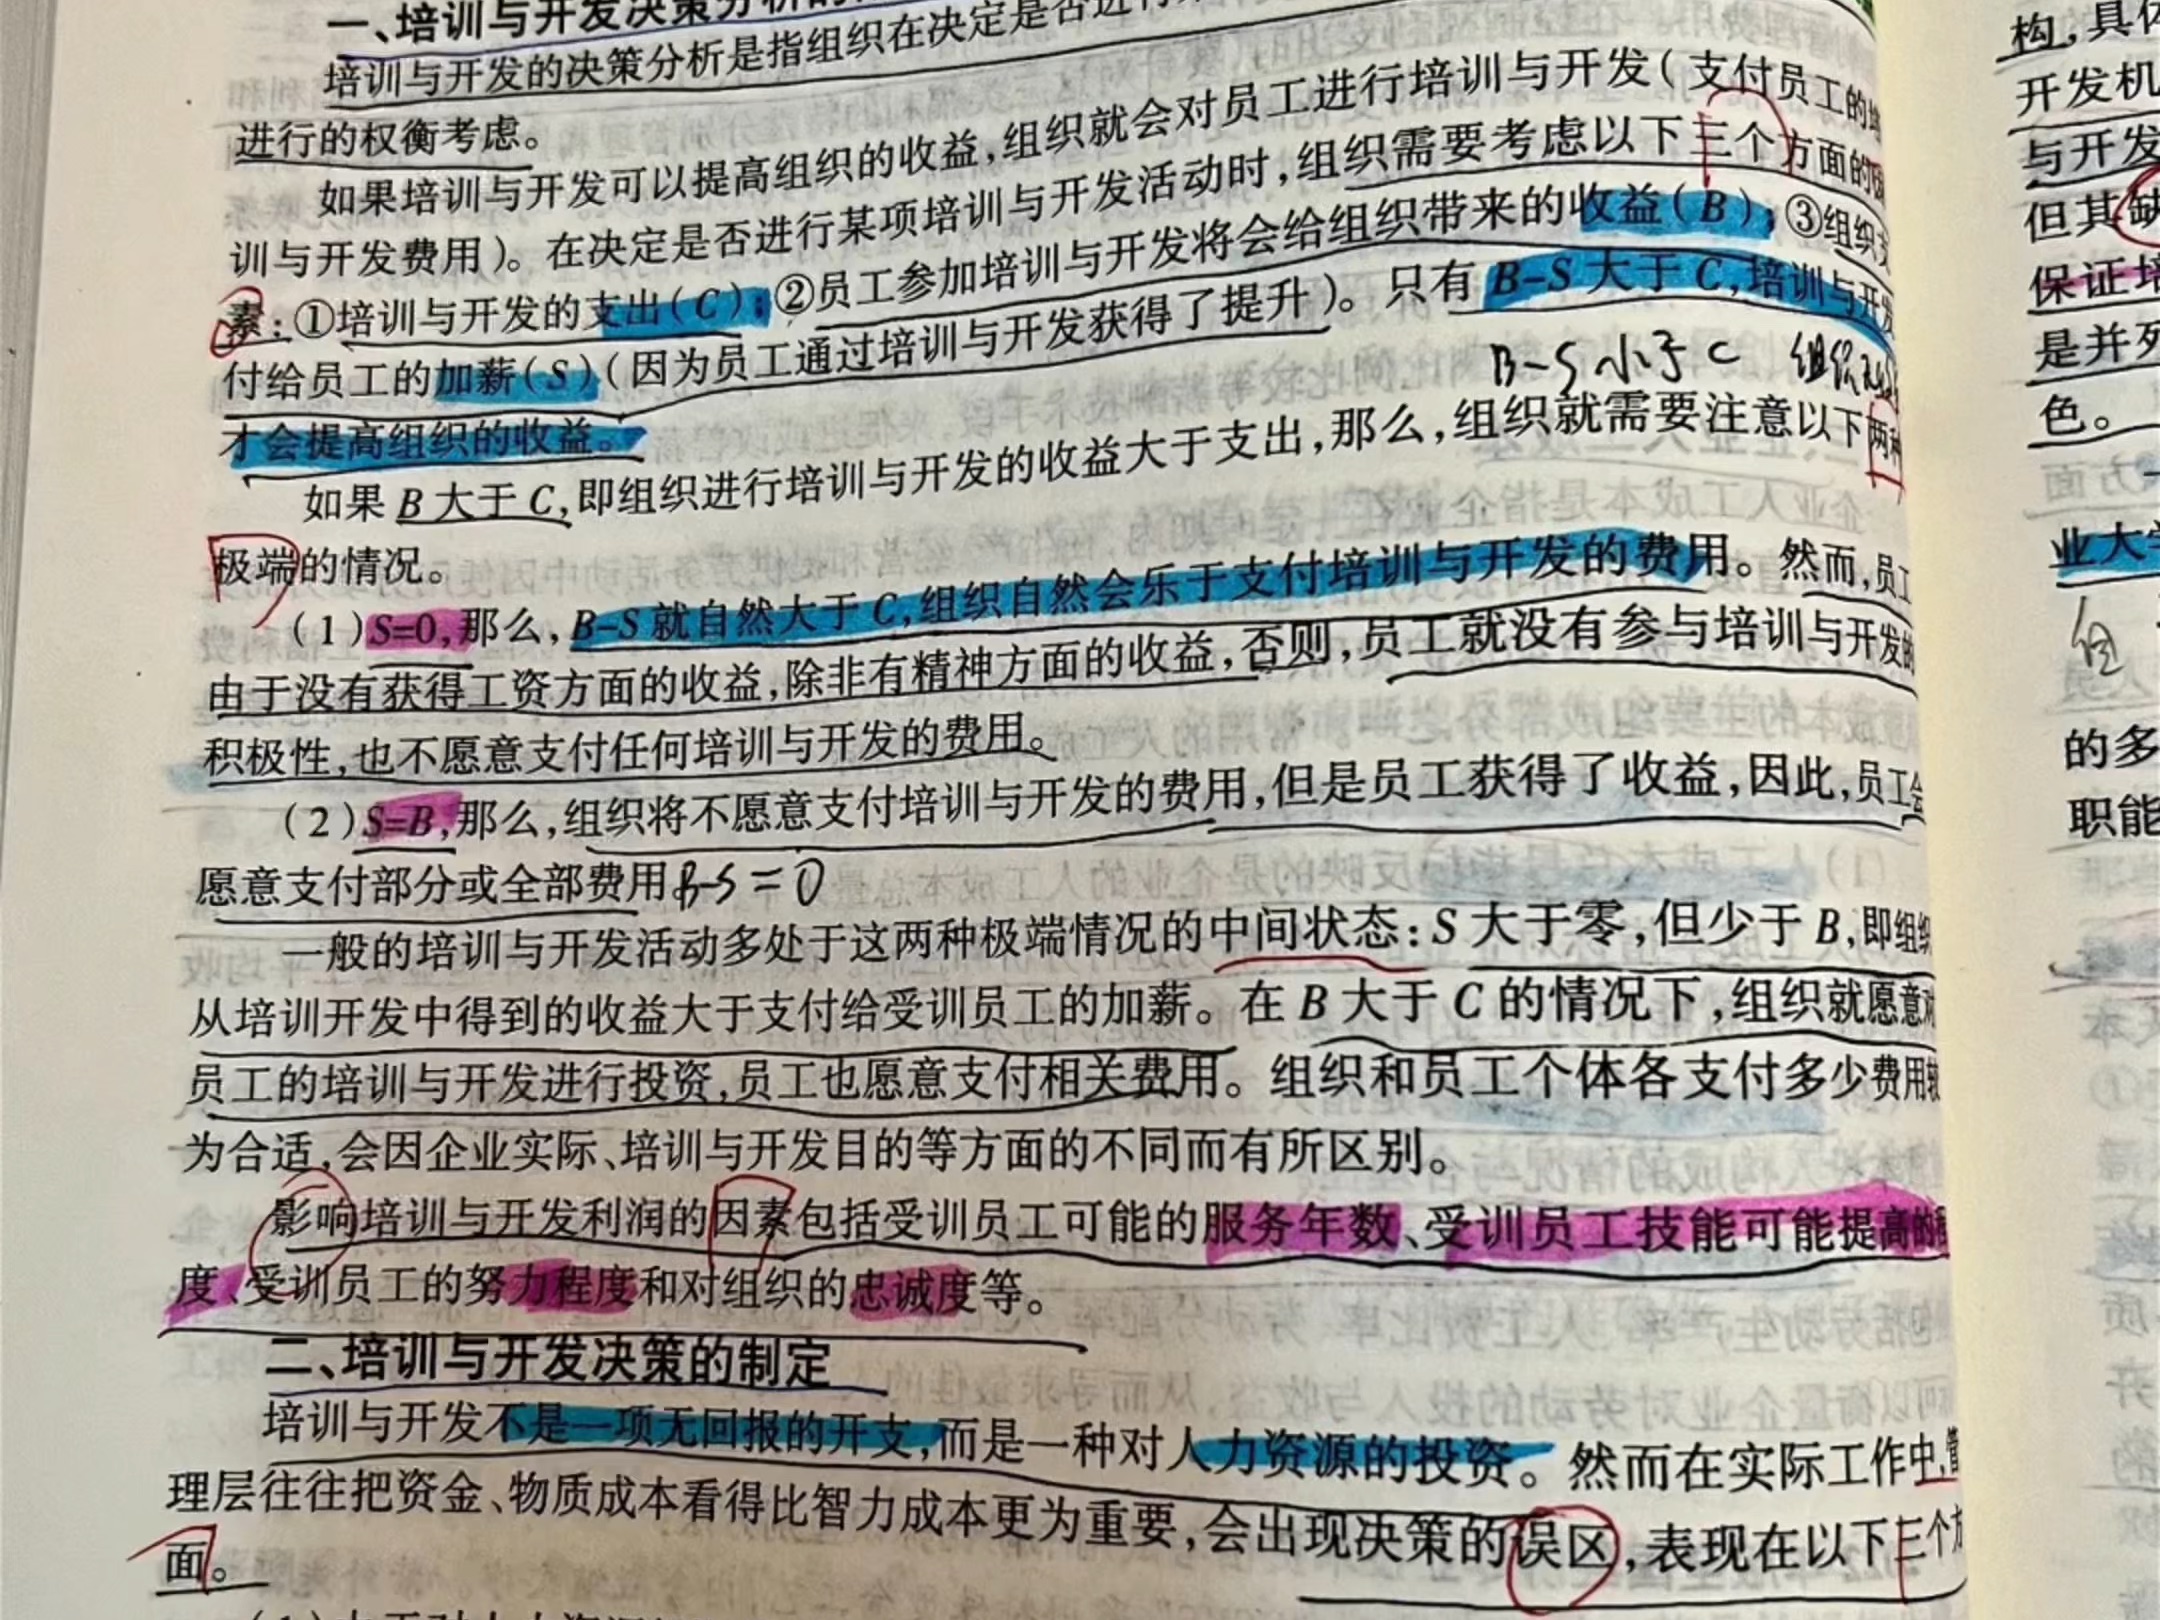 一、培训与开发决策分析的
培训与开发的决策分析是指组织在决定是否进行
进行的权衡考虑。
如果培训与开发可以提高组织的收益,组织就会对员工进行培训与开发(支付员工的培
训与开发费用)。在决定是否进行某项培训与开发活动时,组织需要考虑以下三个方面的因
素:①培训与开发的支出(C);②员工参加培训与开发将会给组织带来的收益(B);③组织支
付给员工的加薪(S)(因为员工通过培训与开发获得了提升)。只有B-S大于C,培训与开发
才会提高组织的收益。
B-S小于C 组织
如果B大于C,即组织进行培训与开发的收益大于支出,那么,组织就需要注意以下两种
极端的情况。
(1)S=0,那么,B-S就自然大于C,组织自然会乐于支付培训与开发的费用。然而,员工
由于没有获得工资方面的收益,除非有精神方面的收益,否则,员工就没有参与培训与开发的
积极性,也不愿意支付任何培训与开发的费用。
(2)S=B,那么,组织将不愿意支付培训与开发的费用,但是员工获得了收益,因此,员工会
愿意支付部分或全部费用 B-S=0
一般的培训与开发活动多处于这两种极端情况的中间状态:S大于零,但少于B,即组织
从培训开发中得到的收益大于支付给受训员工的加薪。在B大于C的情况下,组织就愿意对
员工的培训与开发进行投资,员工也愿意支付相关费用。组织和员工个体各支付多少费用较
为合适,会因企业实际、培训与开发目的等方面的不同而有所区别。
影响培训与开发利润的因素包括受训员工可能的服务年数、受训员工技能可能提高的程
度、受训员工的努力程度和对组织的忠诚度等。
二、培训与开发决策的制定
培训与开发不是一项无回报的开支,而是一种对人力资源的投资。然而在实际工作中,管
理层往往把资金、物质成本看得比智力成本更为重要,会出现决策的误区,表现在以下三个方
面。
构,具体
开发机
与开发
但其缺
保证培
是并列
色。
业大学
组
的多
职能